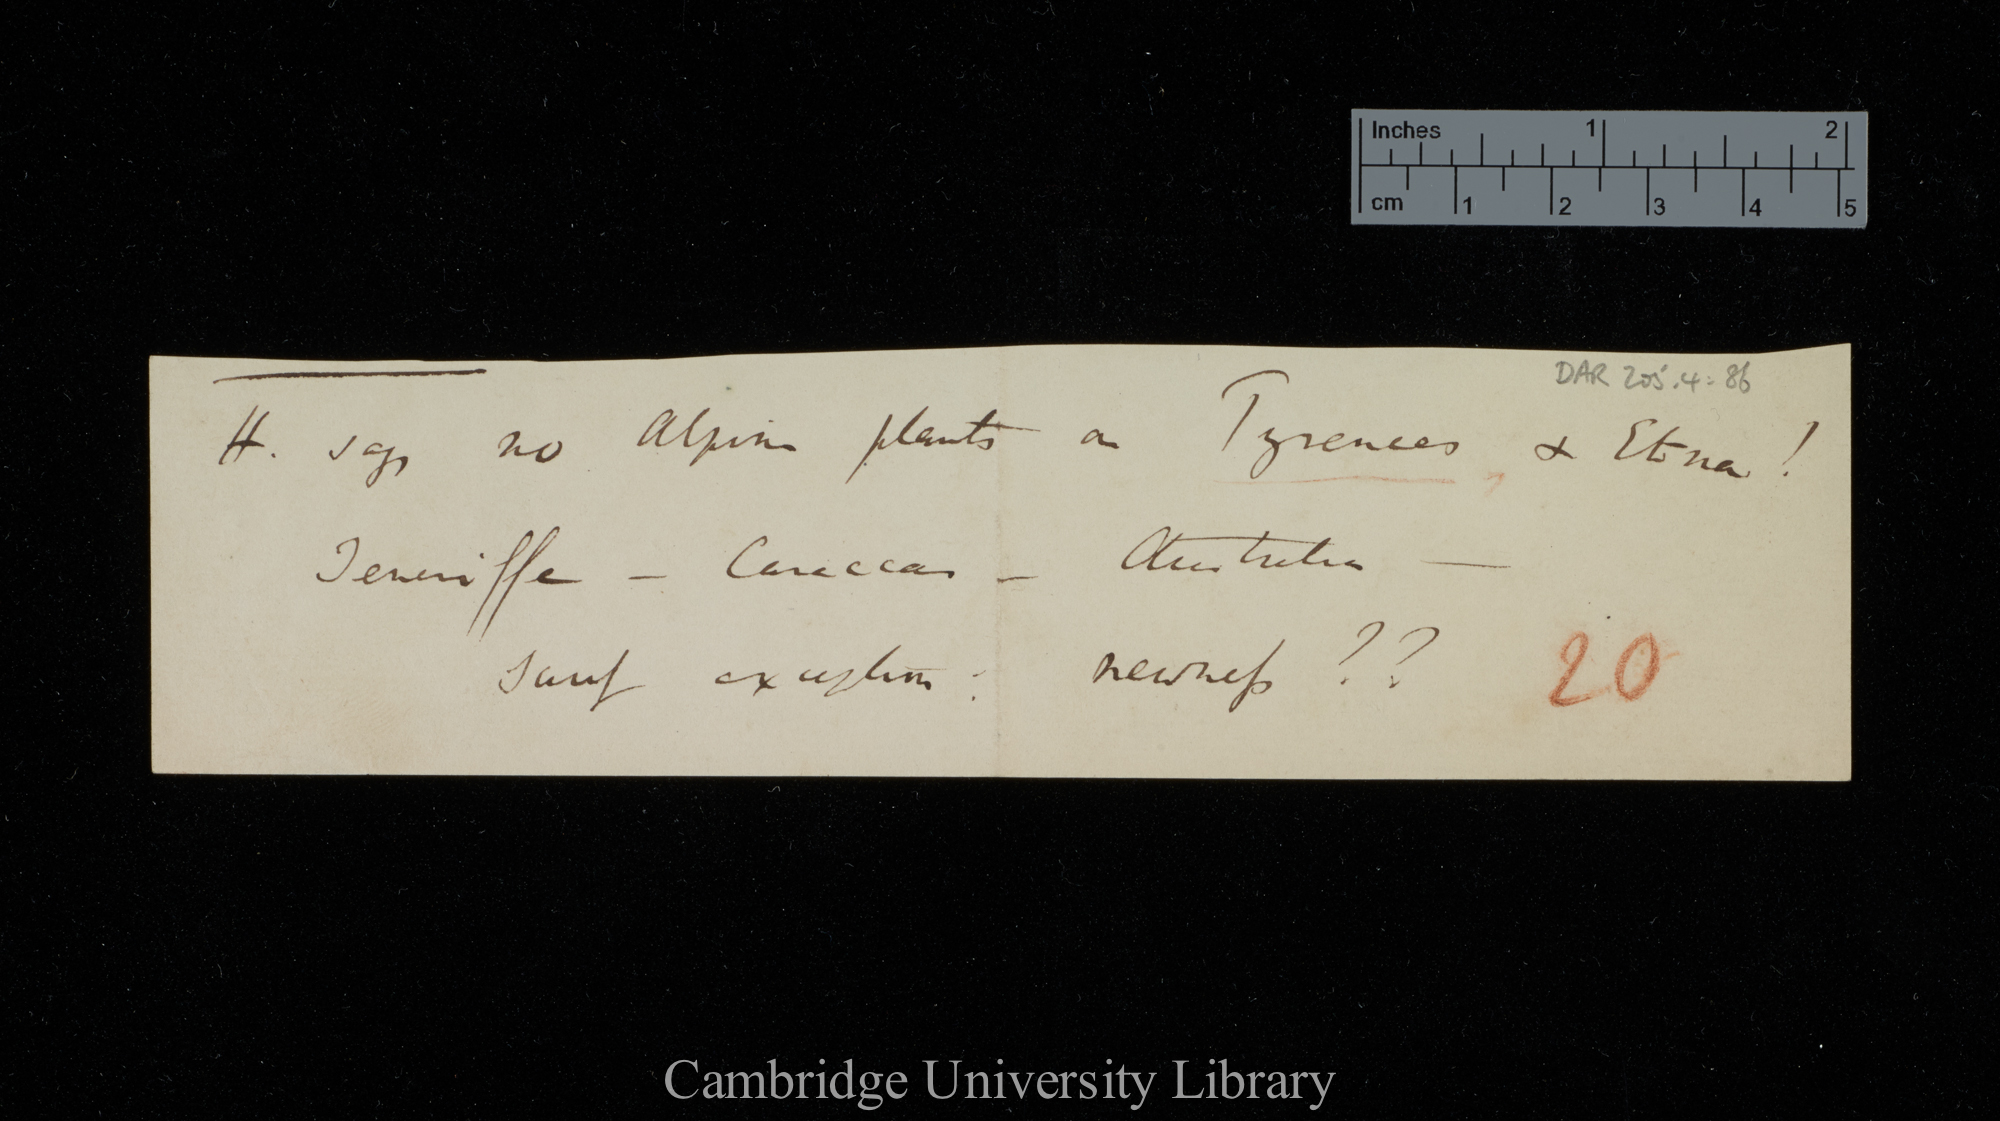 Inches 1 2
cm 1 2 3 4 5
DAR 205.4: 86
H. says no Alpine plants on Pyrenees & Etna!
Teneriffe — Caraccas — Australia —
exception: newness ??
20
Cambridge University Library